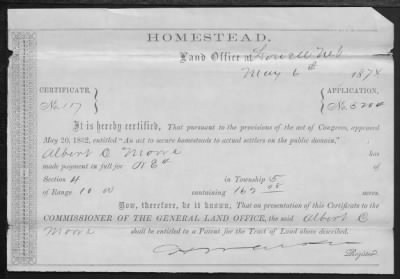 HOMESTEAD.
Land Office at Lowell Neb
May 6th 1874
CERTIFICATE, APPLICATION,
No. 117 No. 5204
It is hereby certified, That pursuant to the provisions of the act of Congress, approved
May 20, 1862, entitled "An act to secure homesteads to actual settlers on the public domain,"
Albert C Moore has
made payment in full for N E 4
Section 4 in Township 5
of Range 10 W containing acres.
Now, therefore, be it known, That on presentation of this Certificate to the
COMMISSIONER OF THE GENERAL LAND OFFICE, the said Albert C
Moore shall be entitled to a Patent for the Tract of Land above described.
Register.